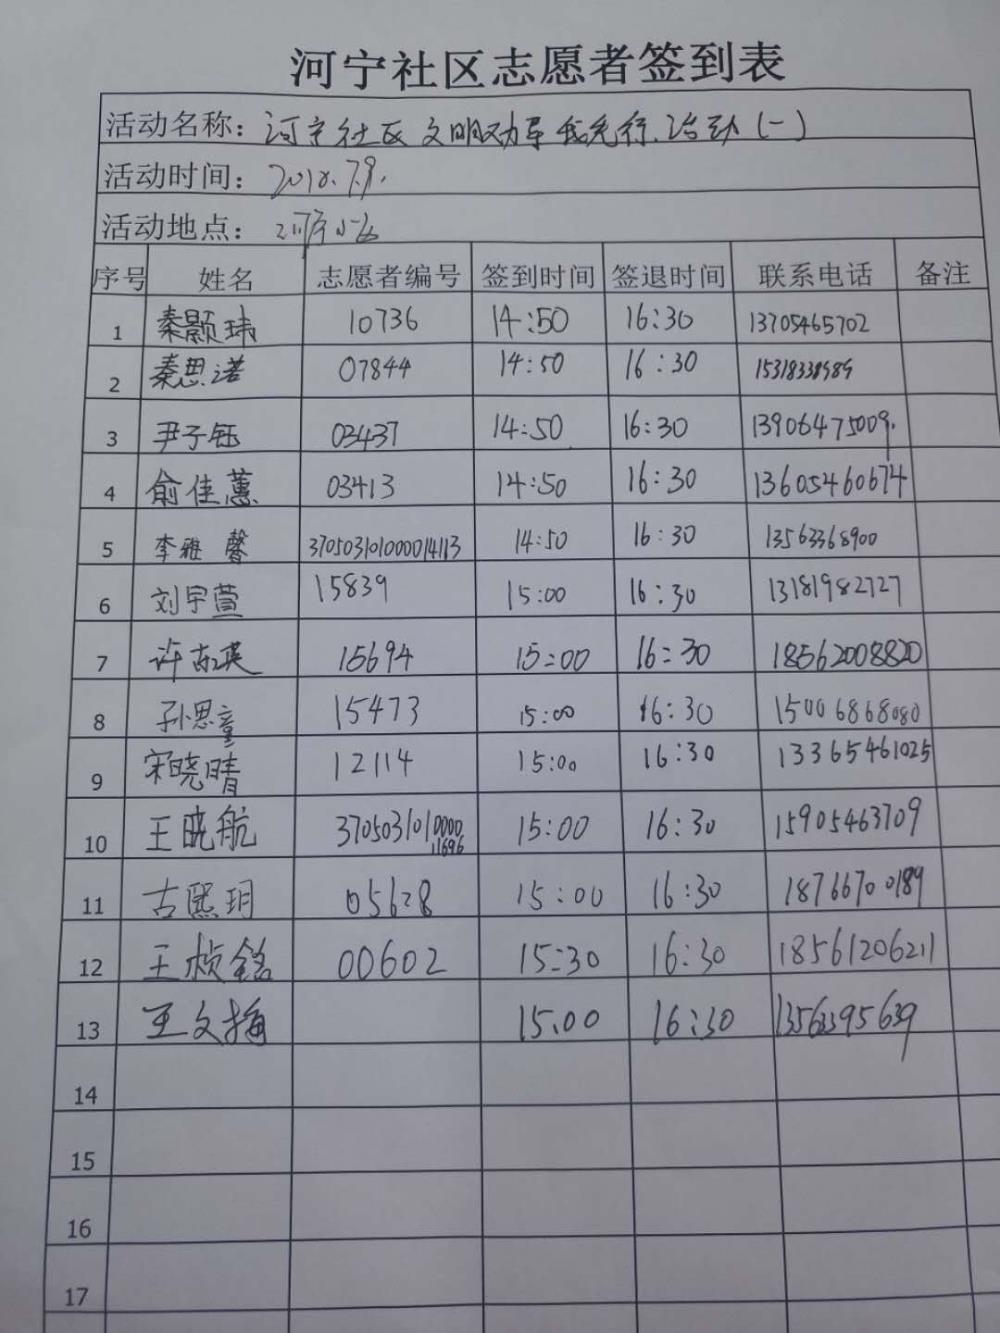 河宁社区志愿者签到表
活动名称：河宁社区文明劝导我先行活动(一)
活动时间：2018.7.9.
活动地点：
序号 姓名 志愿者编号 签到时间 签退时间 联系电话 备注
1 秦颢玮 10736 14:50 16:30 13705465702
2 秦思诺 07844 14:50 16:30 15318338989
3 尹子钰 03437 14:50 16:30 13906475009
4 俞佳蕙 03413 14:50 16:30 13605460674
5 李雅馨 370503101000014113 14:50 16:30 13563368900
6 刘宇萱 15839 15:00 16:30 13181982727
7 许 15694 15:00 16:30 18562008820
8 孙思童 15473 15:00 16:30 15006868080
9 宋晓晴 12114 15:00 16:30 13365461025
10 王晓航 370503101000011696 15:00 16:30 15905463709
11 古熙玥 05628 15:00 16:30 18766700189
12 王桢铭 00602 15:30 16:30 18561206211
13 王文梅 15:00 16:30 13563395639
14
15
16
17